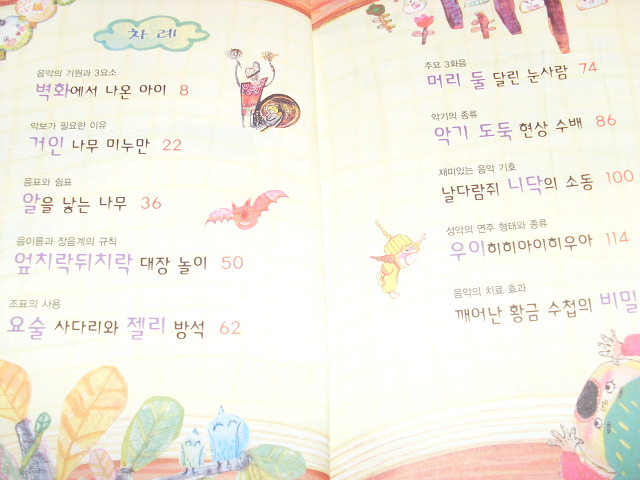 차례
음악의 기원과 3요소
벽화에서 나온 아이 8
악보가 필요한 이유
거인 나무 미누만 22
음표와 쉼표
알을 낳는 나무 36
음이름과 장음계의 규칙
엎치락뒤치락 대장 놀이 50
조표의 사용
요술 사다리와 젤리 방석 62
주요 3화음
머리 둘 달린 눈사람 74
악기의 종류
악기 도둑 현상 수배 86
재미있는 음악 기호
날다람쥐 니닥의 소동 100
성악의 연주 형태와 종류
우이히히아이히우아 114
음악의 치료 효과
깨어난 황금 수첩의 비밀